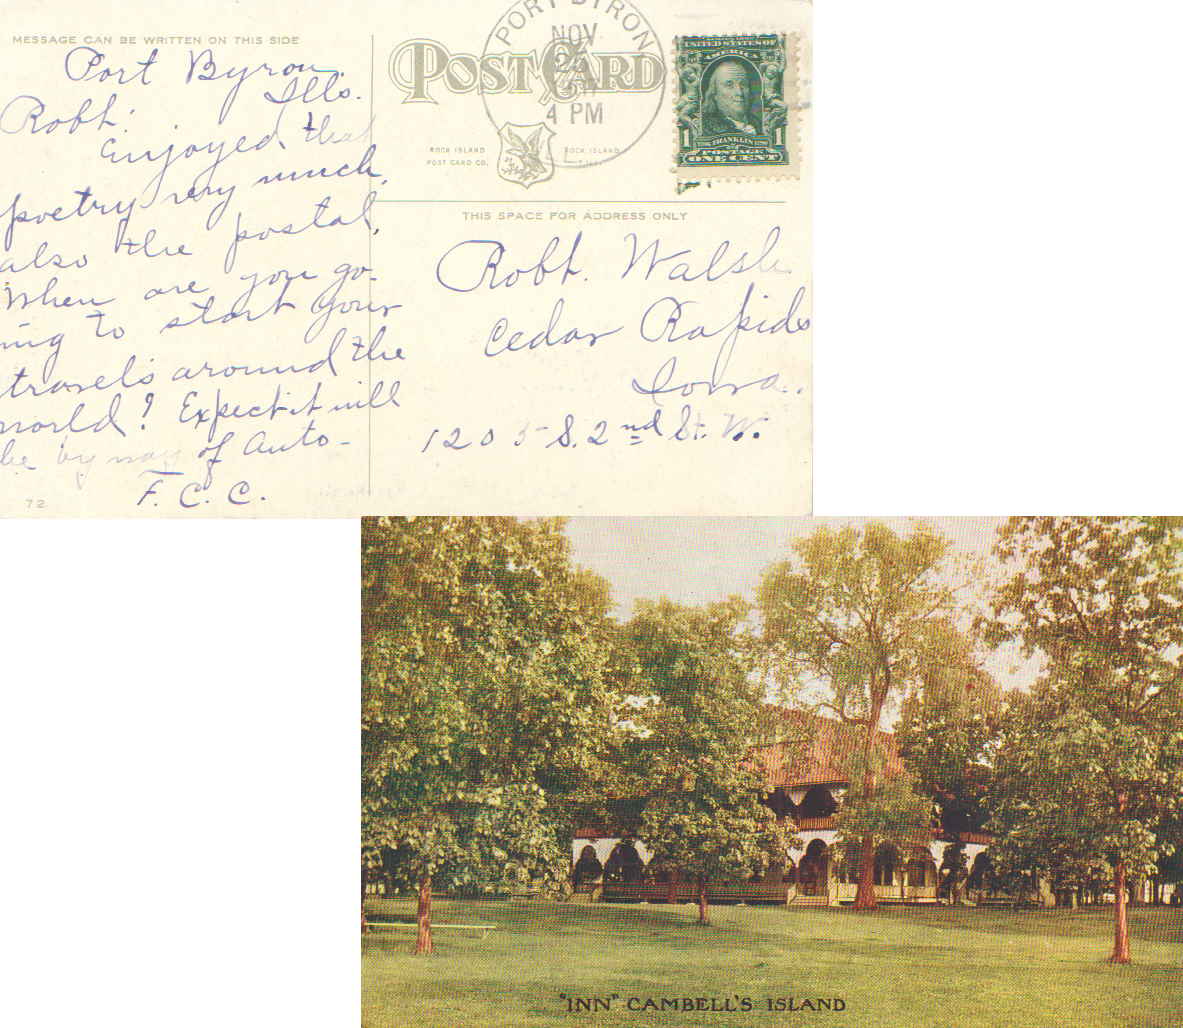 MESSAGE CAN BE WRITTEN ON THIS SIDE
Port Byron.
Ills.
Robt.
Enjoyed that
poetry very much,
also the postal.
When are you go-
ing to start your
travels around the
world? Expect it will
be by way of Auto-
F. C. C.
72
POST CARD
PORT BYRON
NOV
4 PM
UNITED STATES OF
AMERICA
1
FRANKLIN
POSTAGE
ONE CENT
ROCK ISLAND
POST CARD CO.
ROCK ISLAND
THIS SPACE FOR ADDRESS ONLY
Robt. Walsh
Cedar Rapids
Iowa.
1205 S. 2nd St. W.
"INN" CAMBELL'S ISLAND